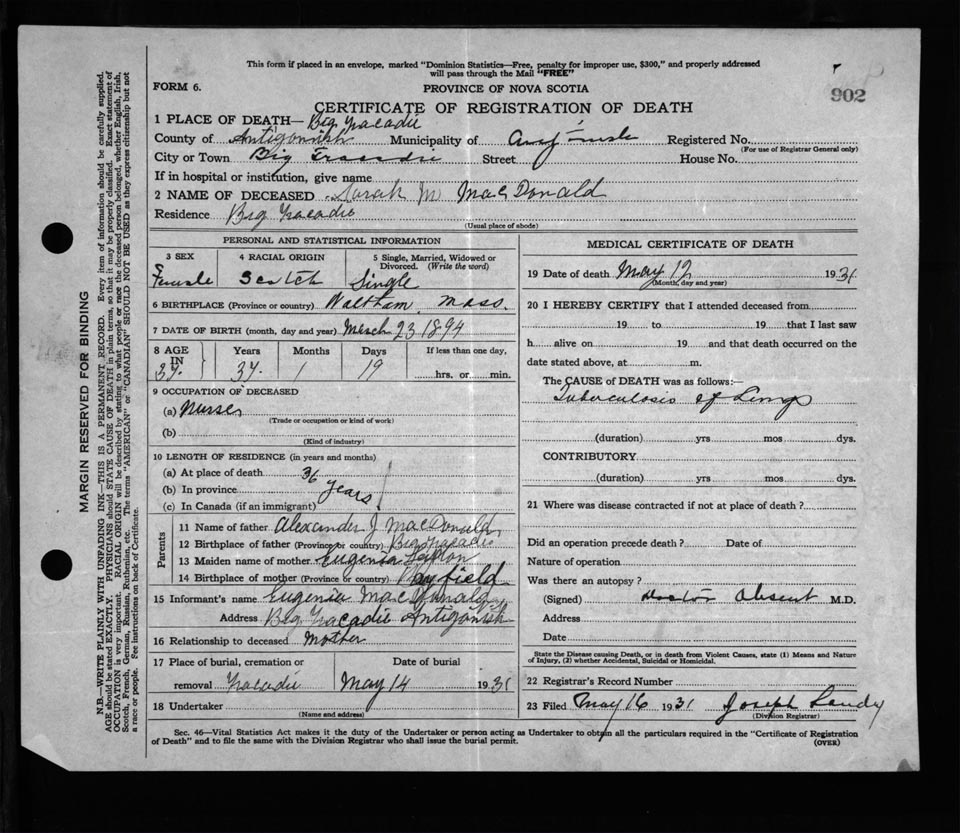 This form if placed in an envelope, marked "Dominion Statistics—Free, penalty for improper use, $300," and properly addressed
will pass through the Mail "FREE"
FORM 6.
PROVINCE OF NOVA SCOTIA
902
CERTIFICATE OF REGISTRATION OF DEATH
1 PLACE OF DEATH— Big Tracadie
County of Antigonish Municipality of Antigonish Registered No.
(For use of Registrar General only)
City or Town Big Tracadie Street House No.
If in hospital or institution, give name
2 NAME OF DECEASED Sarah M MacDonald
Residence Big Tracadie
(Usual place of abode)
PERSONAL AND STATISTICAL INFORMATION
3 SEX 4 RACIAL ORIGIN 5 Single, Married, Widowed or
Divorced. (Write the word)
Female Scotch Single
6 BIRTHPLACE (Province or country) Waltham, Mass.
7 DATE OF BIRTH (month, day and year) March 23 1894
8 AGE IN Years Months Days If less than one day,
37. 37. 1 19 hrs. or min.
9 OCCUPATION OF DECEASED
(a) Nurse
(Trade or occupation or kind of work)
(b)
(Kind of industry)
10 LENGTH OF RESIDENCE (in years and months)
(a) At place of death 36 years
(b) In province
(c) In Canada (if an immigrant)
Parents
11 Name of father Alexander J MacDonald
12 Birthplace of father (Province or country) Big Tracadie
13 Maiden name of mother Eugenia
14 Birthplace of mother (Province or country) Bayfield
15 Informant's name Eugenia MacDonald
Address Big Tracadie Antigonish
16 Relationship to deceased Mother
17 Place of burial, cremation or Date of burial
removal Tracadie May 14 1931
18 Undertaker
(Name and address)
MEDICAL CERTIFICATE OF DEATH
19 Date of death May 12 1931
(Month, day and year)
20 I HEREBY CERTIFY that I attended deceased from
19 to 19 that I last saw
h alive on 19 and that death occurred on the
date stated above, at m.
The CAUSE of DEATH was as follows:—
Tuberculosis of Lungs
(duration) yrs mos dys.
CONTRIBUTORY
(duration) yrs mos dys.
21 Where was disease contracted if not at place of death?
Did an operation precede death? Date of
Nature of operation
Was there an autopsy?
(Signed) Doctor Absent M.D.
Address
Date
State the Disease causing Death, or in death from Violent Causes, state (1) Means and Nature
of Injury, (2) whether Accidental, Suicidal or Homicidal.
22 Registrar's Record Number
23 Filed May 16 1931 Joseph
(Division Registrar)
Sec. 46—Vital Statistics Act makes it the duty of the Undertaker or person acting as Undertaker to obtain all the particulars required in the "Certificate of Registration
of Death" and to file the same with the Division Registrar who shall issue the burial permit.
(OVER)
MARGIN RESERVED FOR BINDING
N.B.—WRITE PLAINLY WITH UNFADING INK—THIS IS A PERMANENT RECORD. Every item of information should be carefully supplied.
AGE should be stated EXACTLY. PHYSICIANS should state CAUSE OF DEATH in plain terms, so that it may be properly classified. Exact statement of
OCCUPATION is very important. RACIAL ORIGIN will be described by stating to what people or race the deceased person belonged, whether English, Irish,
Scotch, French, German, Russian, Ruthenian, etc. The terms "AMERICAN" or "CANADIAN" SHOULD NOT BE USED as they express citizenship but not
a race or people. See instructions on back of Certificate.